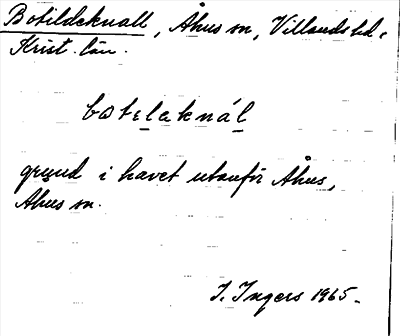 Botildeknall, Åhus sn, Villands hd,
Krist. län.
grund i havet utanför Åhus,
Åhus sn.
I. Ingers 1965.